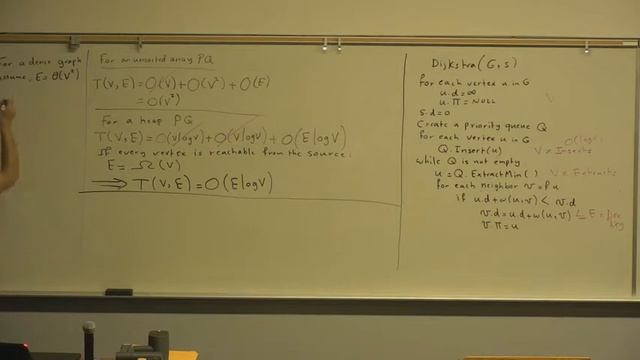 For a dense graph
assume, E = Θ(V²)
For an unsorted array PQ
T(V,E) = O(V) + O(V²) + O(E)
= O(V²)
For a heap PQ
T(V,E) = O(V log V) + O(V log V) + O(E log V)
If every vertex is reachable from the source:
E = Ω(V)
⟹ T(V,E) = O(E log V)
Dijkstra(G,s)
For each vertex u in G
u.d = ∞
u.π = NULL
s.d = 0
Create a priority queue Q
For each vertex u in G
Q.Insert(u) V × Inserts
while Q is not empty
u = Q.ExtractMin() V × Extracts
for each neighbor v of u
if u.d + w(u,v) < v.d
v.d = u.d + w(u,v) ≤ E
v.π = u